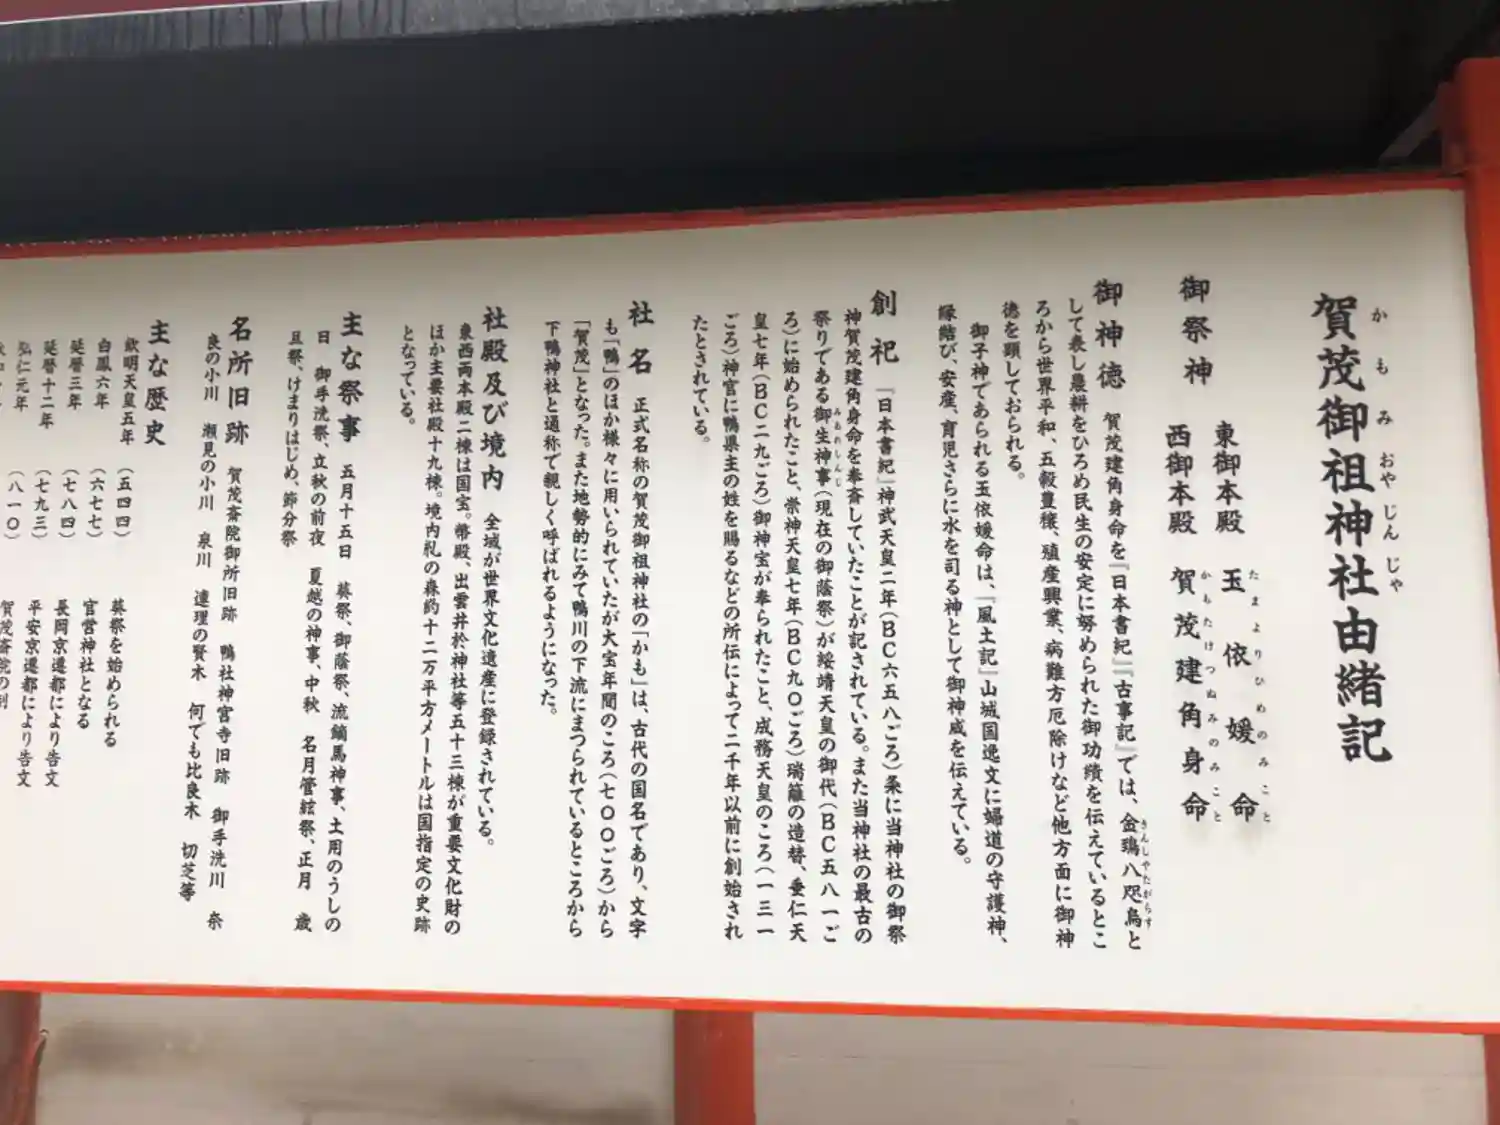 賀茂御祖神社由緒記
かもみおやじんじゃ
御祭神
東御本殿 玉依媛命
たまよりひめのみこと
西御本殿 賀茂建角身命
かもたけつぬみのみこと
御神徳 賀茂建角身命を『日本書紀』『古事記』では、金鵄八咫烏と
きんしやたがらす
して表し農耕をひろめ民生の安定に努められた御功績を伝えているとこ
ろから世界平和、五穀豊穣、殖産興業、病難方厄除けなど他方面に御神
徳を顕しておられる。
御子神であられる玉依媛命は、『風土記』山城国逸文に婦道の守護神、
縁結び、安産、育児さらに水を司る神として御神威を伝えている。
創祀 『日本書紀』神武天皇二年(BC六五八ごろ)条に当神社の御祭
神賀茂建角身命を奉斎していたことが記されている。また当神社の最古の
祭りである御生神事(現在の御蔭祭)が綏靖天皇の御代(BC五八一ご
みあれしんじ
ろ)に始められたこと、崇神天皇七年(BC九〇ごろ)瑞籬の造替、垂仁天
皇七年(BC二九ごろ)御神宝が奉られたこと、成務天皇のころ(一三一
ごろ)神官に鴨県主の姓を賜るなどの所伝によって二千年以前に創始され
たとされている。
社名 正式名称の賀茂御祖神社の「かも」は、古代の国名であり、文字
も「鴨」のほか様々に用いられていたが大宝年間のころ(七〇〇ごろ)から
「賀茂」となった。また地勢的にみて鴨川の下流にまつられているところから
下鴨神社と通称で親しく呼ばれるようになった。
社殿及び境内 全域が世界文化遺産に登録されている。
東西両本殿二棟は国宝。幣殿、出雲井於神社等五十三棟が重要文化財の
ほか主要社殿十九棟。境内糺の森約十二万平方メートルは国指定の史跡
となっている。
主な祭事 五月十五日 葵祭、御蔭祭、流鏑馬神事、土用のうしの
日 御手洗祭、立秋の前夜 夏越の神事、中秋 名月管絃祭、正月 歳
旦祭、けまりはじめ、節分祭
名所旧跡 賀茂斎院御所旧跡 鴨社神宮寺旧跡 御手洗川 奈
良の小川 瀬見の小川 泉川 連理の賢木 何でも比良木 切芝等
主な歴史
欽明天皇五年 (五四四) 葵祭を始められる
白鳳六年 (六七七) 官営神社となる
延暦三年 (七八四) 長岡京遷都により告文
延暦十二年 (七九三) 平安京遷都により告文
弘仁元年 (八一〇) 賀茂斎院の制